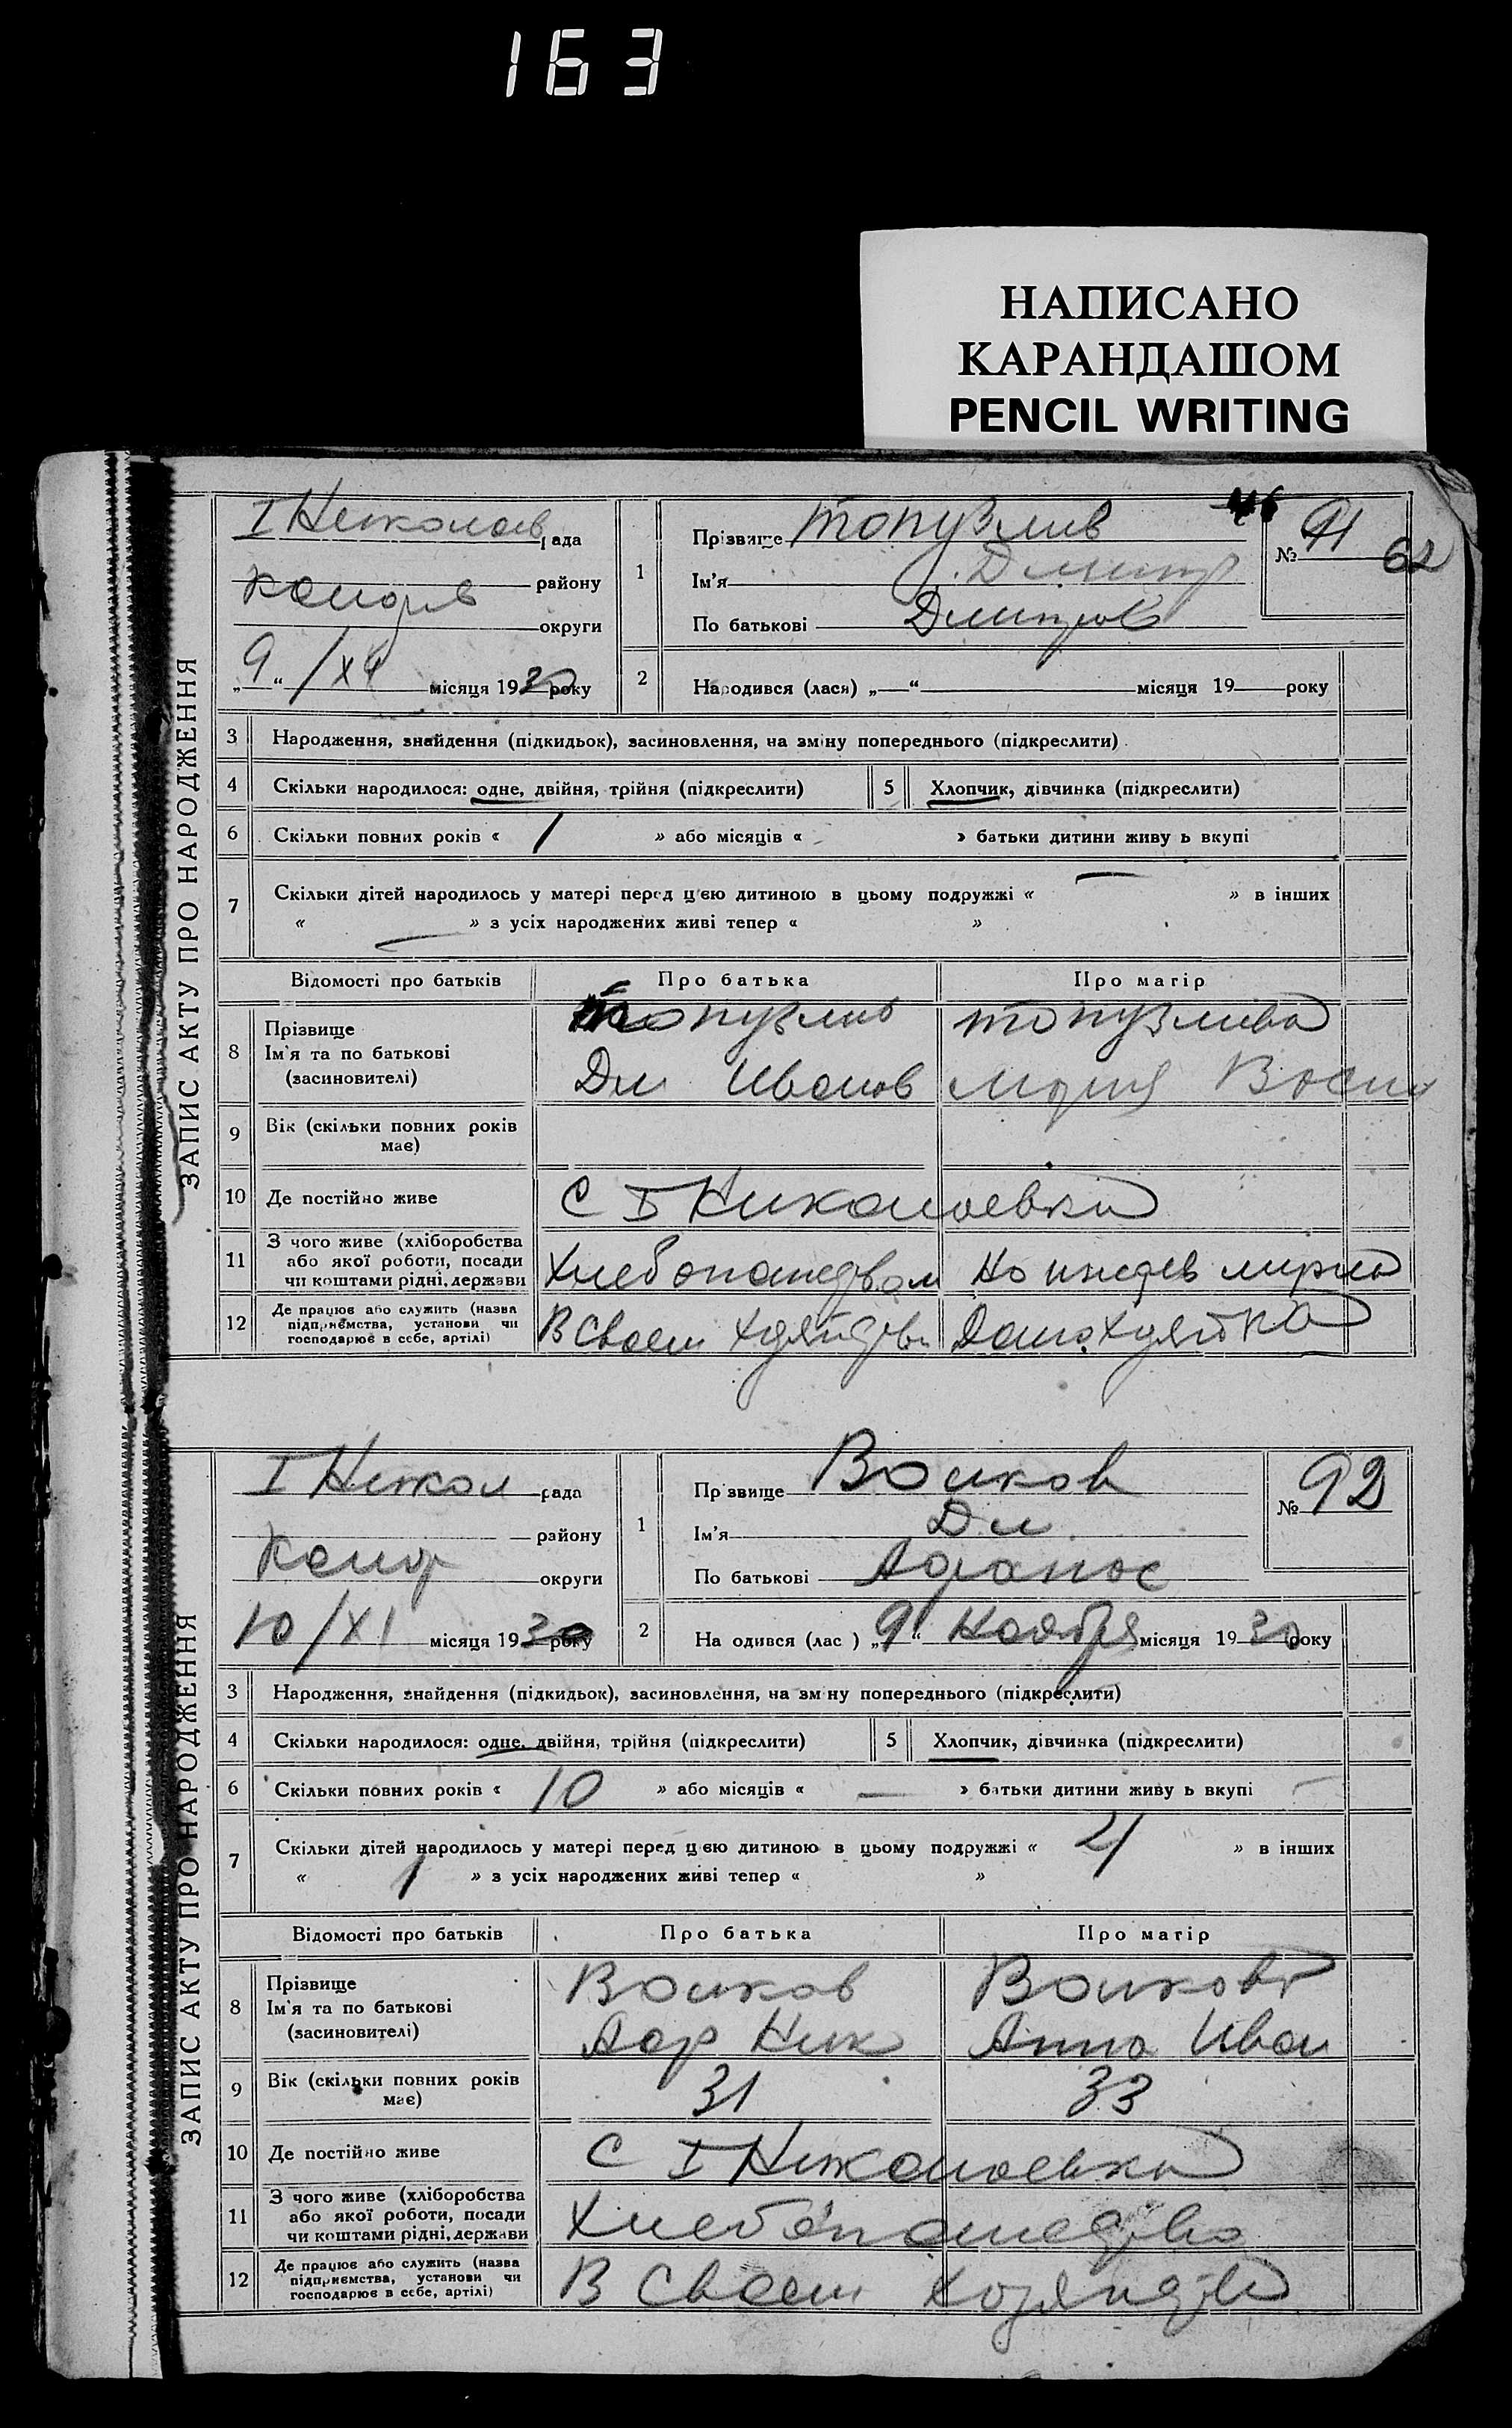 163
НАПИСАНО
КАРАНДАШОМ
PENCIL WRITING
ЗАПИС АКТУ ПРО НАРОДЖЕННЯ
I Николаев рада
району
округи
„9“ /XI місяця 1930 року
1
Прізвище Топузлив
Ім'я Дмитр
По батькові Дмитров
№ 91
62
2 Народився (лася) „—“ місяця 19 року
3 Народження, знайдення (підкидьок), засиновлення, на зміну попереднього (підкреслити)
4 Скільки народилося: одне, двійня, трійня (підкреслити) 5 Хлопчик, дівчинка (підкреслити)
6 Скільки повних років « 1 » або місяців « » батьки дитини живу ь вкупі
7 Скільки дітей народилось у матері перед цією дитиною в цьому подружжі « — » в інших
« — » з усіх народжених живі тепер « »
Відомості про батьків Про батька Про матір
8 Прізвище
Ім'я та по батькові
(засиновителі)
Топузлив Топузлива
Дм Иванов Мария
9 Вік (скільки повних років має)
10 Де постійно живе С I Николаевка
11 З чого живе (хліборобства або якої роботи, посади чи коштами рідні, держави На иждев мужа
12 Де працює або служить (назва підприємства, установи чи господарює в себе, артілі) В своем Домохозяйка
ЗАПИС АКТУ ПРО НАРОДЖЕННЯ
I Никол рада
району
округи
10/XI місяця 1930 року
1
Пр звище Волков
Ім'я Дм
По батькові Афанас
№ 92
2 На одився (лас ) „9“ Ноября місяця 1930 року
3 Народження, знайдення (підкидьок), засиновлення, на зм ну попереднього (підкреслити)
4 Скільки народилося: одне, двійня, трійня (підкреслити) 5 Хлопчик, дівчинка (підкреслити)
6 Скільки повних років « 10 » або місяців « — » батьки дитини живу ь вкупі —
7 Скільки дітей народилось у матері перед цією дитиною в цьому подружжі « 4 » в інших
« 1 » з усіх народжених живі тепер « »
Відомості про батьків Про батька Про матір
8 Прізвище
Ім'я та по батькові
(засиновителі)
Волков Волкова
Аф Ник Анна Иван
9 Вік (скільки повних років має) 31 33
10 Де постійно живе С I Николаевка
11 З чого живе (хліборобства або якої роботи, посади чи коштами рідні, держави Хлебопашество
12 Де працює або служить (назва підприємства, установи чи господарює в себе, артілі) В своем